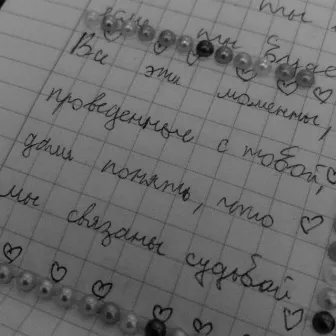 ты
если ты будешь
Все эти моменты,
проведенные с тобой,
дали понять, что
мы связаны судьбой